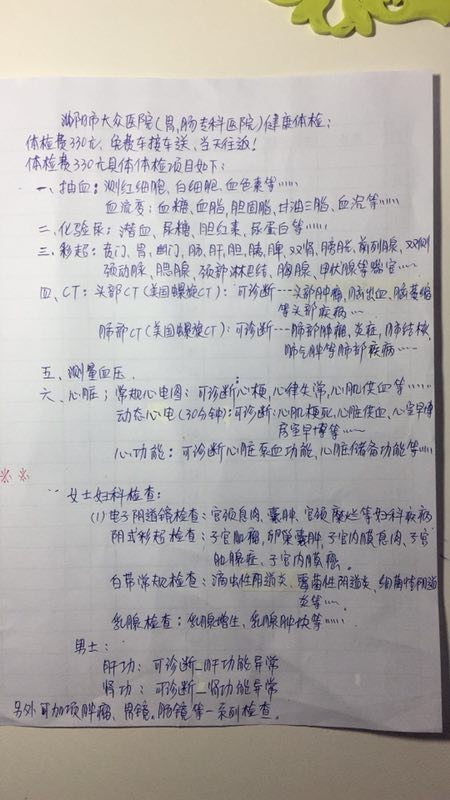 湖阳市大众医院(胃,肠专科医院)健康体检;
体检费330元,免费车接车送、当天往返!
体检费330元具体体检项目如下:
一、抽血:测红细胞、白细胞、血色素等……
血流变:血糖、血脂、胆固脂、甘油三脂、血沉等……
二、化验尿:潜血、尿糖、胆红素、尿蛋白等……
三、彩超:贲门、胃、幽门、肠、肝、胆、胰、脾、双肾、膀胱、前列腺、双侧
颈动脉、腮腺、颈部淋巴结、胸腺、甲状腺等器官……
四、CT:头部CT(美国螺旋CT):可诊断---头部肿瘤、脑出血、脑萎缩
等头部疾病……
肺部CT(美国螺旋CT):可诊断---肺部肿瘤、炎症、肺结核、
肺气肿等肺部疾病……
五、测量血压、
六、心脏;常规心电图:可诊断心梗、心律失常、心肌供血等……
动态心电(30分钟):可诊断:心肌梗死、心脏供血、心室早博
房室早博等……
心功能:可诊断心脏泵血功能、心脏储备功能等……
※ ※
女士妇科检查:
(1)电子阴道镜检查:宫颈息肉、囊肿、宫颈糜烂等妇科疾病
阴式彩超检查:子宫肌瘤、卵巢囊肿、子宫内膜息肉、子宫
肌腺症、子宫内膜癌。
白带常规检查:滴虫性阴道炎、霉菌性阴道炎、细菌性阴道
炎等……
乳腺检查:乳腺增生、乳腺肿块等……
男士:
肝功:可诊断--肝功能异常
肾功:可诊断--肾功能异常
另外可加项肿瘤、胃镜、肠镜等一系列检查。